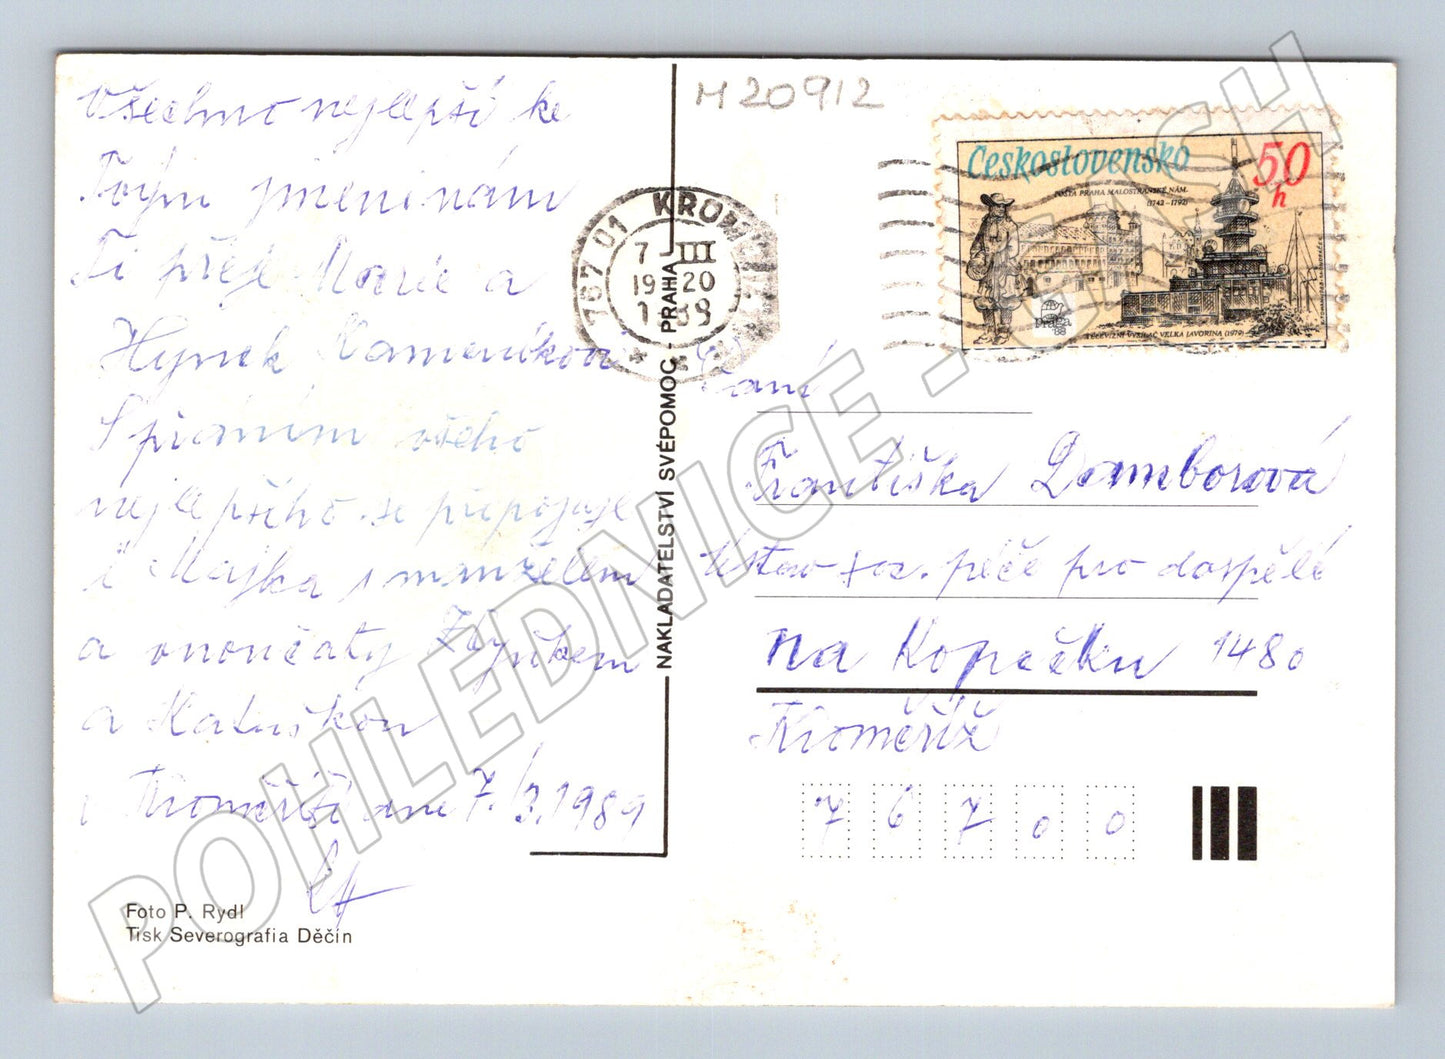 Všechno nejlepší ke
Tvým jmeninám
Ti přeje Marie a
Hynek Kameníkovi
S přáním všeho
nejlepšího se připojuje
i Majka s manželem
a vnoučaty Hynkem
a Katuškou
v Kroměříži dne 7./3.1989
Foto P. Rydl
Tisk Severografia Děčín
NAKLADATELSTVÍ SVÉPOMOC - PRAHA
M20912
767 01 KROMĚŘÍŽ 1
7 III
19 20
1989
Československo
50 h
POŠTA PRAHA MALOSTRANSKÉ NÁM.
(1742 - 1792)
Praga
88
TELEVIZNÍ VYSÍLAČ VELKÁ JAVORINA (1979)
Paní
Františka Damborová
Ústav soc. péče pro dospělé
na Kopečku 1480
Kroměříž
7 6 7 0 0
POHLEDNICE - CASH